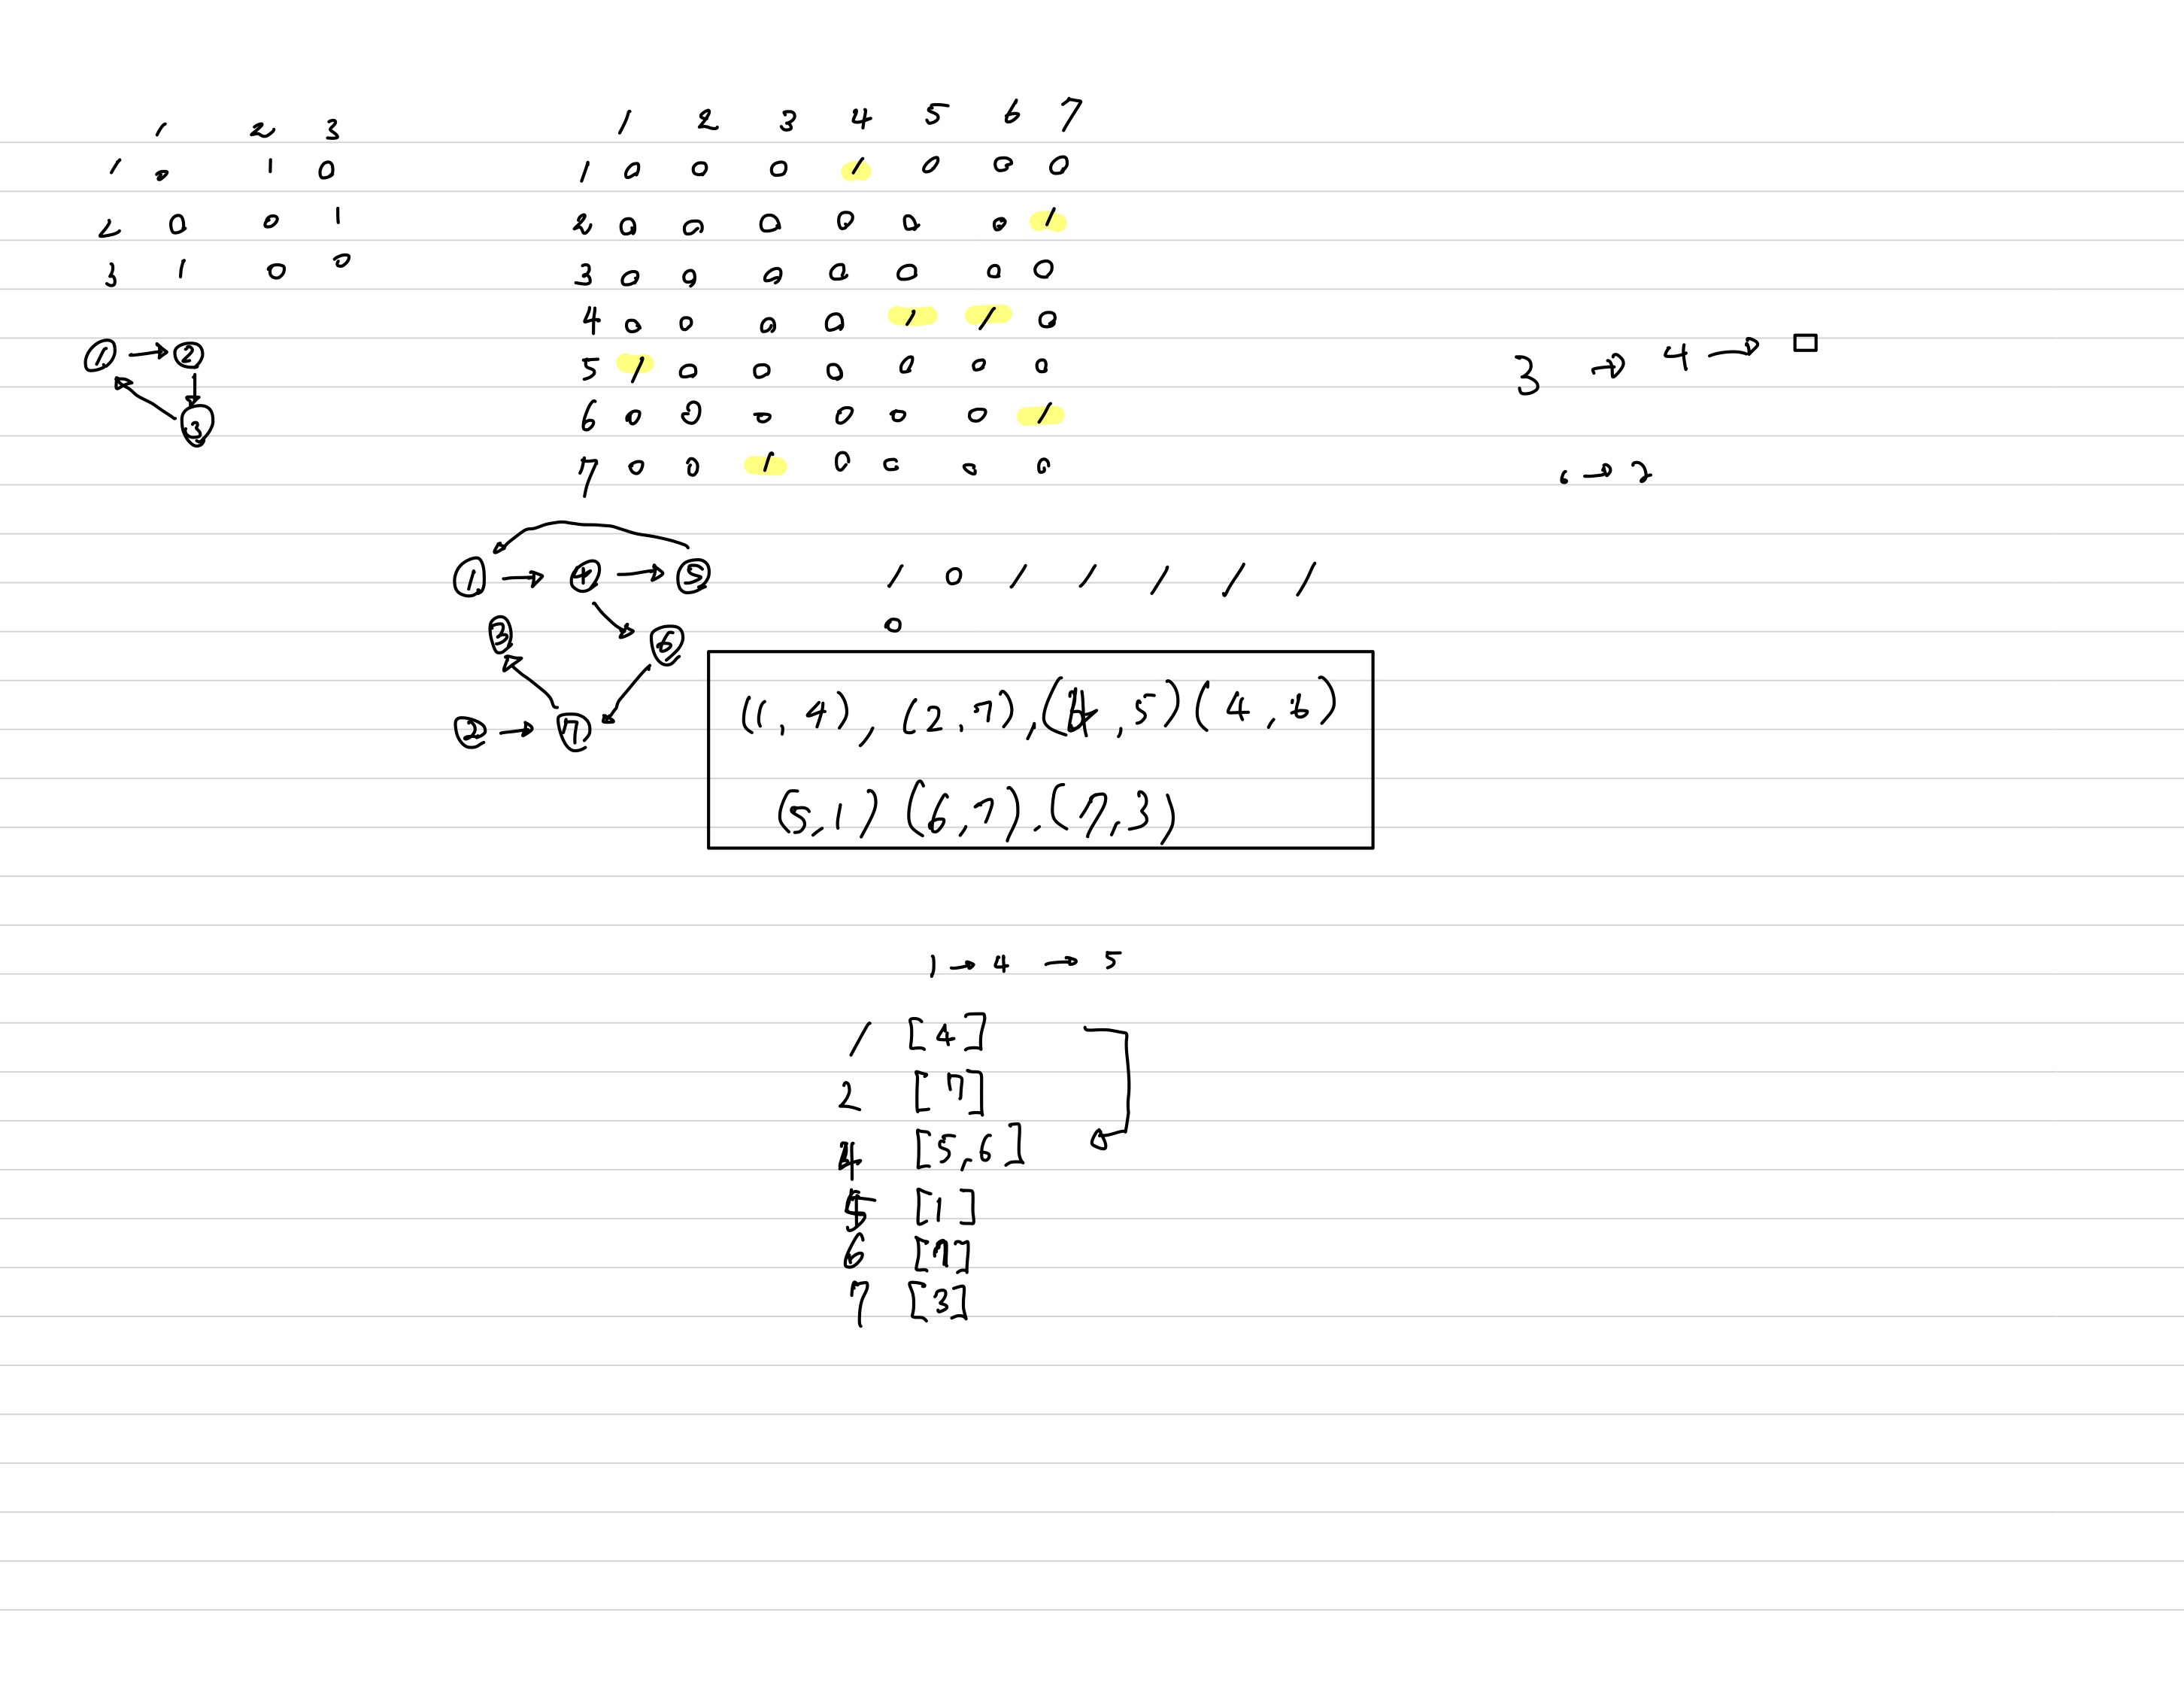 1 2 3
1 0 1 0
2 0 0 1
3 1 0 0
1 2 3 4 5 6 7
1 0 0 0 1 0 0 0
2 0 0 0 0 0 0 1
3 0 0 0 0 0 0 0
4 0 0 0 0 1 1 0
5 1 0 0 0 0 0 0
6 0 0 0 0 0 0 1
7 0 0 1 0 0 0 0
1 → 2
3
3 → 4 → □
6 → 2
1 → 4 → 5
3 6
2 → 7
1 0 1 1 1 1 1
0
(1, 4), (2, 7), (4, 5) (4, 6)
(5, 1) (6, 7), (7, 3)
1 → 4 → 5
1 [4]
2 [7]
4 [5, 6]
5 [1]
6 [7]
7 [3]